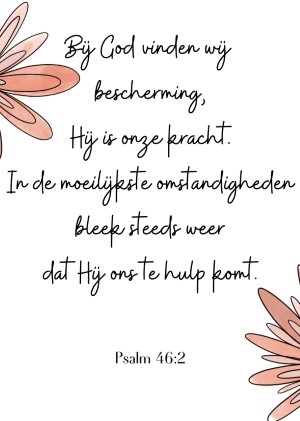 Bij God vinden wij
bescherming,
Hij is onze kracht.
In de moeilijkste omstandigheden
bleek steeds weer
dat Hij ons te hulp komt.
Psalm 46:2